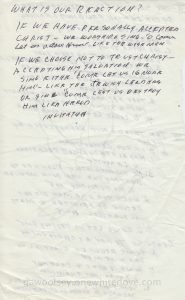 WHAT IS OUR REACTION?
IF WE HAVE PERSONALLY ACCEPTED
CHRIST - WE SING - O COME
LET US ADORE HIM - LIKE THE WISE MEN
IF WE CHOOSE NOT TO TRUST CHRIST -
ACCEPTING HIM SALVATION WE
SING EITHER COME LET US IGNORE
HIM - LIKE THE
OR SING COME LET US DESTROY
HIM LIKE HEROD